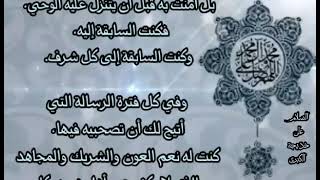 بل آمنت به قبل أن يتنزل عليه الوحي.
فكنت السابقة إليه.
وكنت السابقة إلى كل شرف.
وفي كل فترة الرسالة التي
أتيح لك أن تصحبيه فيها.
كنت له نعم العون والشريك والمجاهد
السلام
على
خديجة
الكبرى